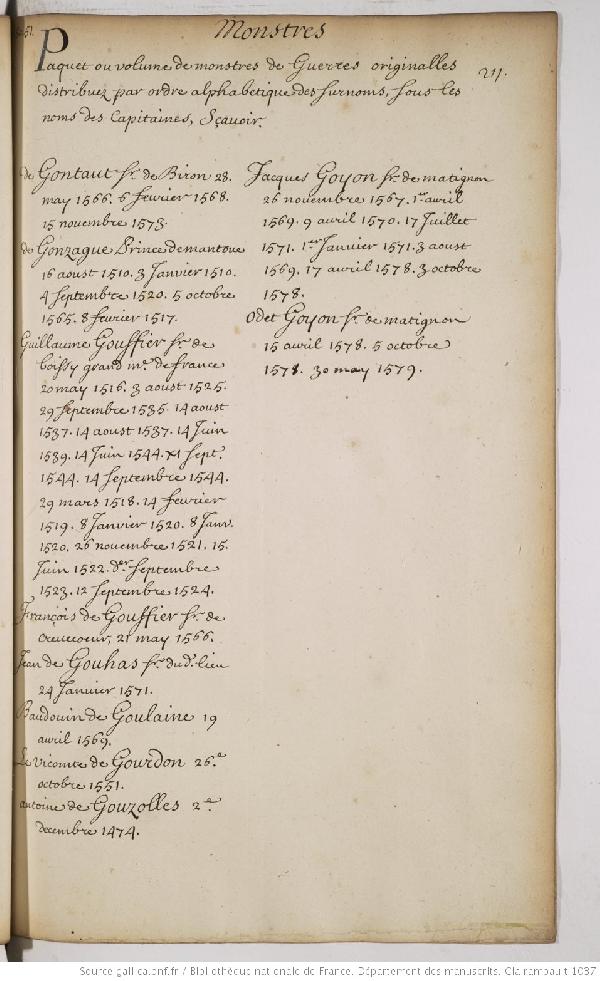 Monstres
Paquet ou volume de monstres de Guerres originalles
211.
distribuez par ordre alphabetique des surnoms, sous les
noms des Capitaines, Sçavoir.
de Gontaut sr. de Biron 28.
may 1566. 6 fevrier 1568.
15 novembre 1573.
de Gonzague Prince de mantoue
16 aoust 1510. 3 Janvier 1510.
4 septembre 1520. 5 octobre
1565. 8 fevrier 1517.
Guillaume Gouffier sr. de
boissy grand me. de france
20 may 1516. 3 aoust 1525.
29 septembre 1535. 14 aoust
1537. 14 aoust 1537. 14 Juin
1539. 14 Juin 1544. XI sept.
1544. 14 septembre 1544.
29 mars 1518. 14 fevrier
1519. 8 Janvier 1520. 8 Janv.
1520. 26 novembre 1521. 15.
Juin 1522. der septembre
1523. 12 septembre 1524.
François de Gouffier sr. de
Crevecoeur, 21 may 1566.
Jean de Gouhas sr. du d. lieu
24 Janvier 1571.
Baudouin de Goulaine 19
avril 1569.
Le vicomte de Gourdon 26.e
octobre 1551.
antoine de Gouzolles 2.e
decembre 1474.
Jacques Goyon sr. de matignon
26 novembre 1567. 1er avril
1569. 9 avril 1570. 17 Juillet
1571. 1er Janvier 1571. 3 aoust
1569. 17 avril 1578. 3 octobre
1578.
Odet Goyon sr. de matignon
15 avril 1578. 5 octobre
1578. 30 may 1579.
Source gallica.bnf.fr / Bibliothèque nationale de France. Département des manuscrits. Clairambault 1037